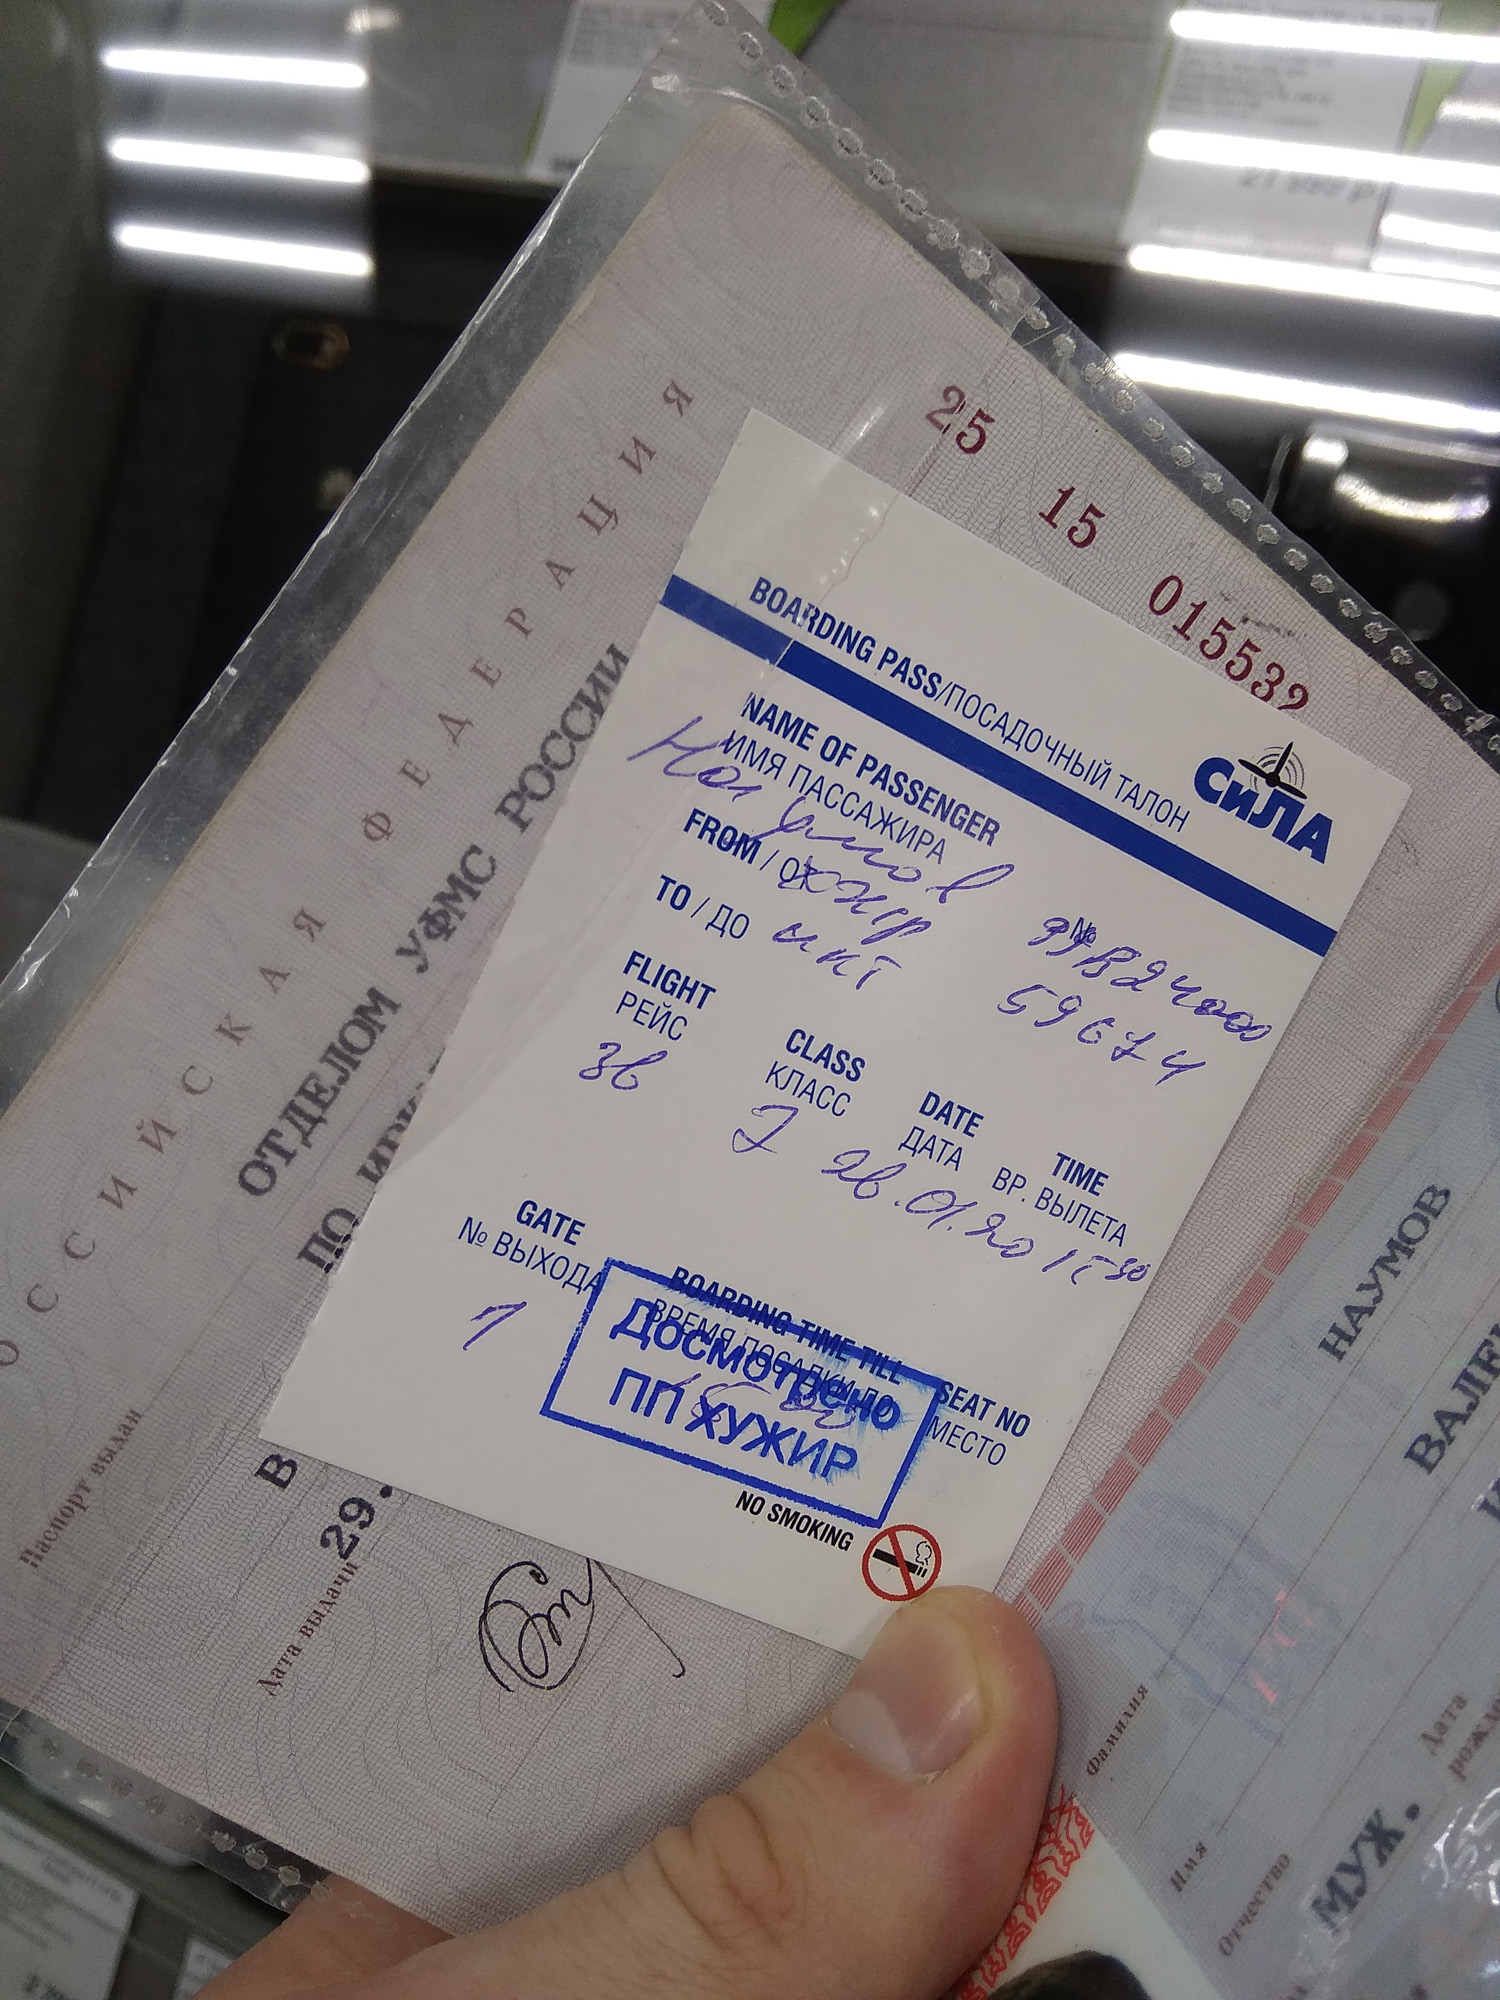 25 15 015532
РОССИЙСКАЯ ФЕДЕРАЦИЯ
ОТДЕЛОМ УФМС РОССИИ
ПО
В
29.
Паспорт выдан
Дата выдачи
BOARDING PASS/ПОСАДОЧНЫЙ ТАЛОН
СиЛА
NAME OF PASSENGER
ИМЯ ПАССАЖИРА
Наумов
FROM / ОТ
TO / ДО икт
№
59674
FLIGHT
РЕЙС
36
CLASS
КЛАСС
DATE
ДАТА
28.01.20
TIME
ВР. ВЫЛЕТА
GATE
№ ВЫХОДА
1
BOARDING TIME TILL
ВРЕМЯ ПОСАДКИ ДО
SEAT NO
МЕСТО
ДОСМОТРЕНО
ПП ХУЖИР
NO SMOKING
НАУМОВ
Фамилия
Имя
Отчество
МУЖ.
Дата